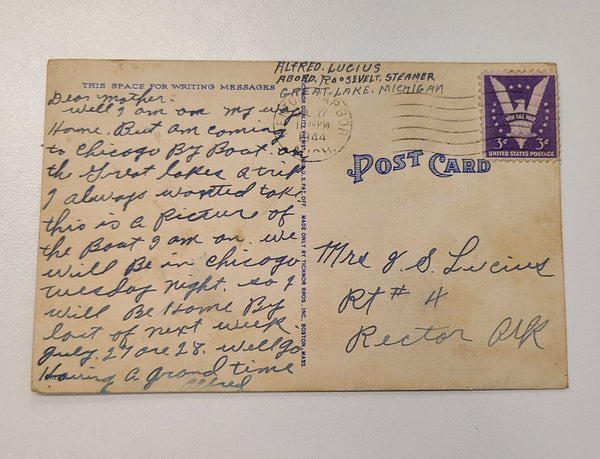 ALFRED. LUCIUS
ABOARD. ROOSEVELT. STEAMER
GREAT. LAKE. MICHIGAN
THIS SPACE FOR WRITING MESSAGES
Dear mother.
Well I am on my way
Home. But am coming
to Chicago By Boat. on
the Great lakes a trip
I always wanted take,
this is a Picture of
the Boat I am on. we
will Be in chicago
tuesday night. so I
will Be Home By
last of next week.
July. 27 are 28. well go
Having a grand time
Alfred
MADE ONLY BY TICHNOR BROS., INC., BOSTON, MASS.
HARBOR
27
PM
1944
MICH.
WIN THE WAR
3¢ 3¢
UNITED STATES POSTAGE
POST CARD
Mrs J. S. Lucius
Rt # 4
Rector Ark